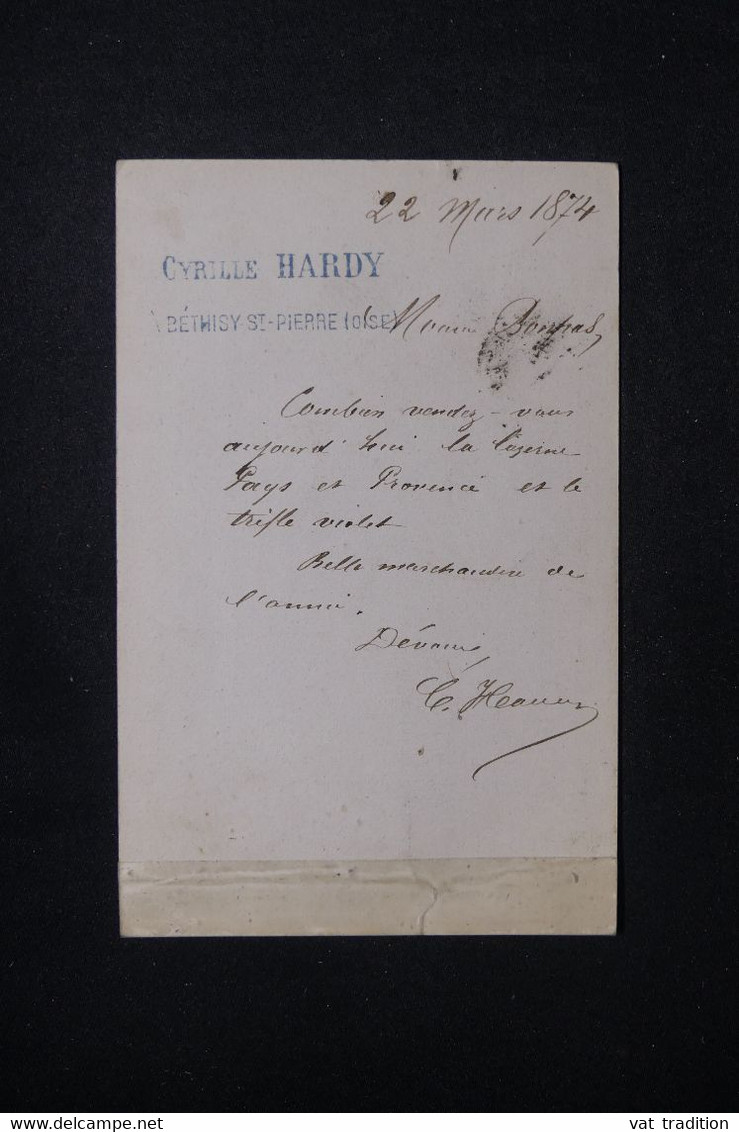 22 Mars 1874
CYRILLE HARDY
BÉTHISY-ST-PIERRE (OISE)
Combien vendez-vous
aujourd'hui la luzerne
Pays et Provence et le
trèfle violet
Belle marchandise de
l'année.
Dévoué,
C. Hardy
vat tradition